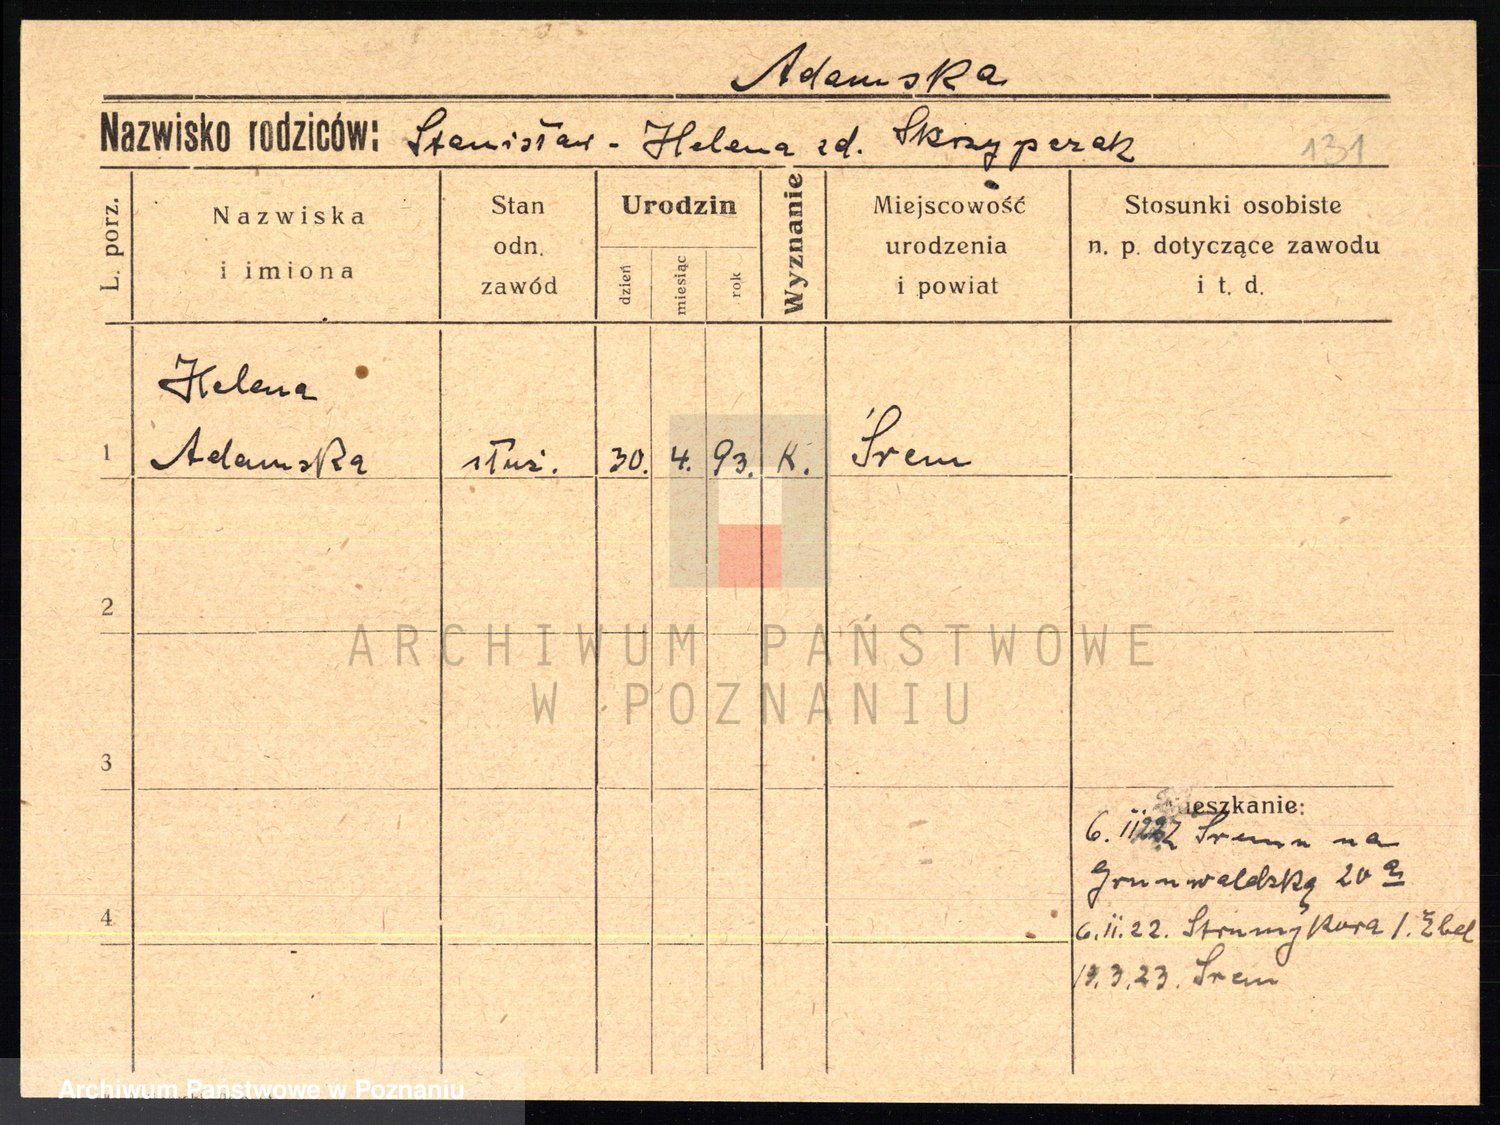 Adamska
Nazwisko rodziców: Stanisław - Helena zd. Skrzypczak 131
L. porz.
Nazwiska i imiona
Stan odn. zawód
Urodzin
dzień
miesiąc
rok
Wyznanie
Miejscowość urodzenia i powiat
Stosunki osobiste n. p. dotyczące zawodu i t. d.
Helena
1 Adamska służ. 30. 4. 93. K. Śrem
2
ARCHIWUM PAŃSTWOWE
W POZNANIU
3
Mieszkanie:
6. II 22 Z Śremu na
Grunwaldską 20 a
4
6.II.22. Strumykowa 1.
3.23. Śrem
Archiwum Państwowe w Poznaniu